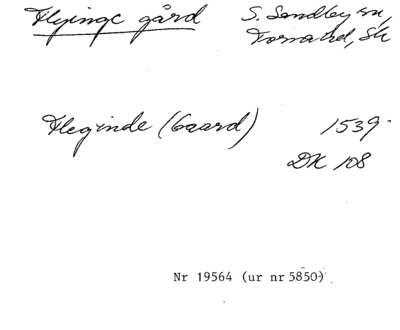 Flyinge gård S. Sandby sn,
Torna hd, Sk
Fleginde (Gaard) 1539
DK 108
Nr 19564 (ur nr 5850)